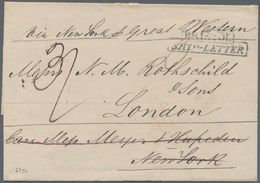 via New York & Great Western
BRISTOL
SHIP-LETTER
Messrs N. M. Rothschild
& Sons
London
Care Messrs Meyer & Hupeden
New York